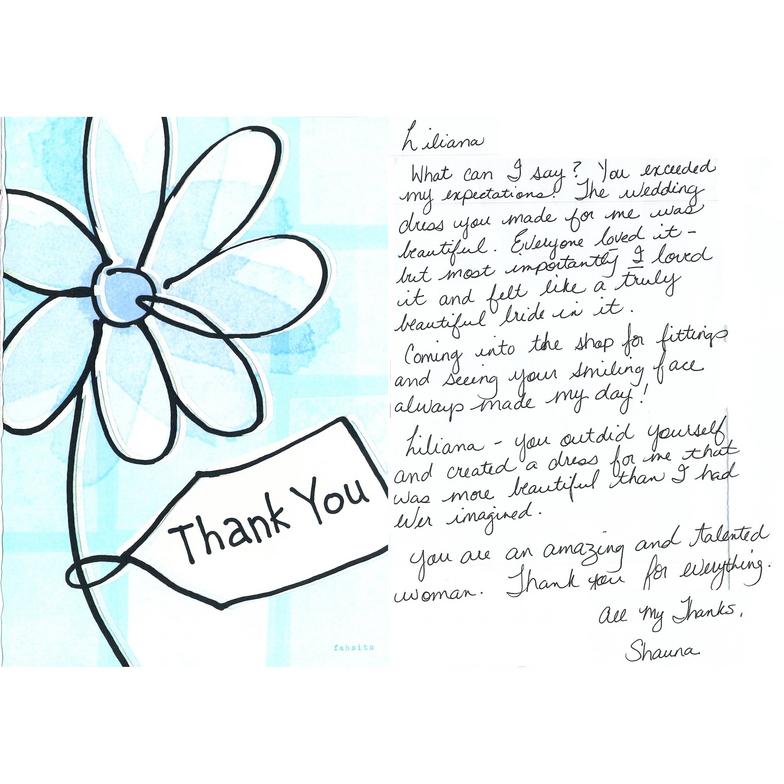 Thank You
fabsits
Liliana
What can I say? You exceeded
my expectations! The wedding
dress you made for me was
beautiful. Everyone loved it -
but most importantly I loved
it and felt like a truly
beautiful bride in it.
Coming into the shop for fittings
and seeing your smiling face
always made my day!
Liliana - you outdid yourself
and created a dress for me that
was more beautiful than I had
ever imagined.
You are an amazing and talented
woman. Thank you for everything.
All My Thanks,
Shauna